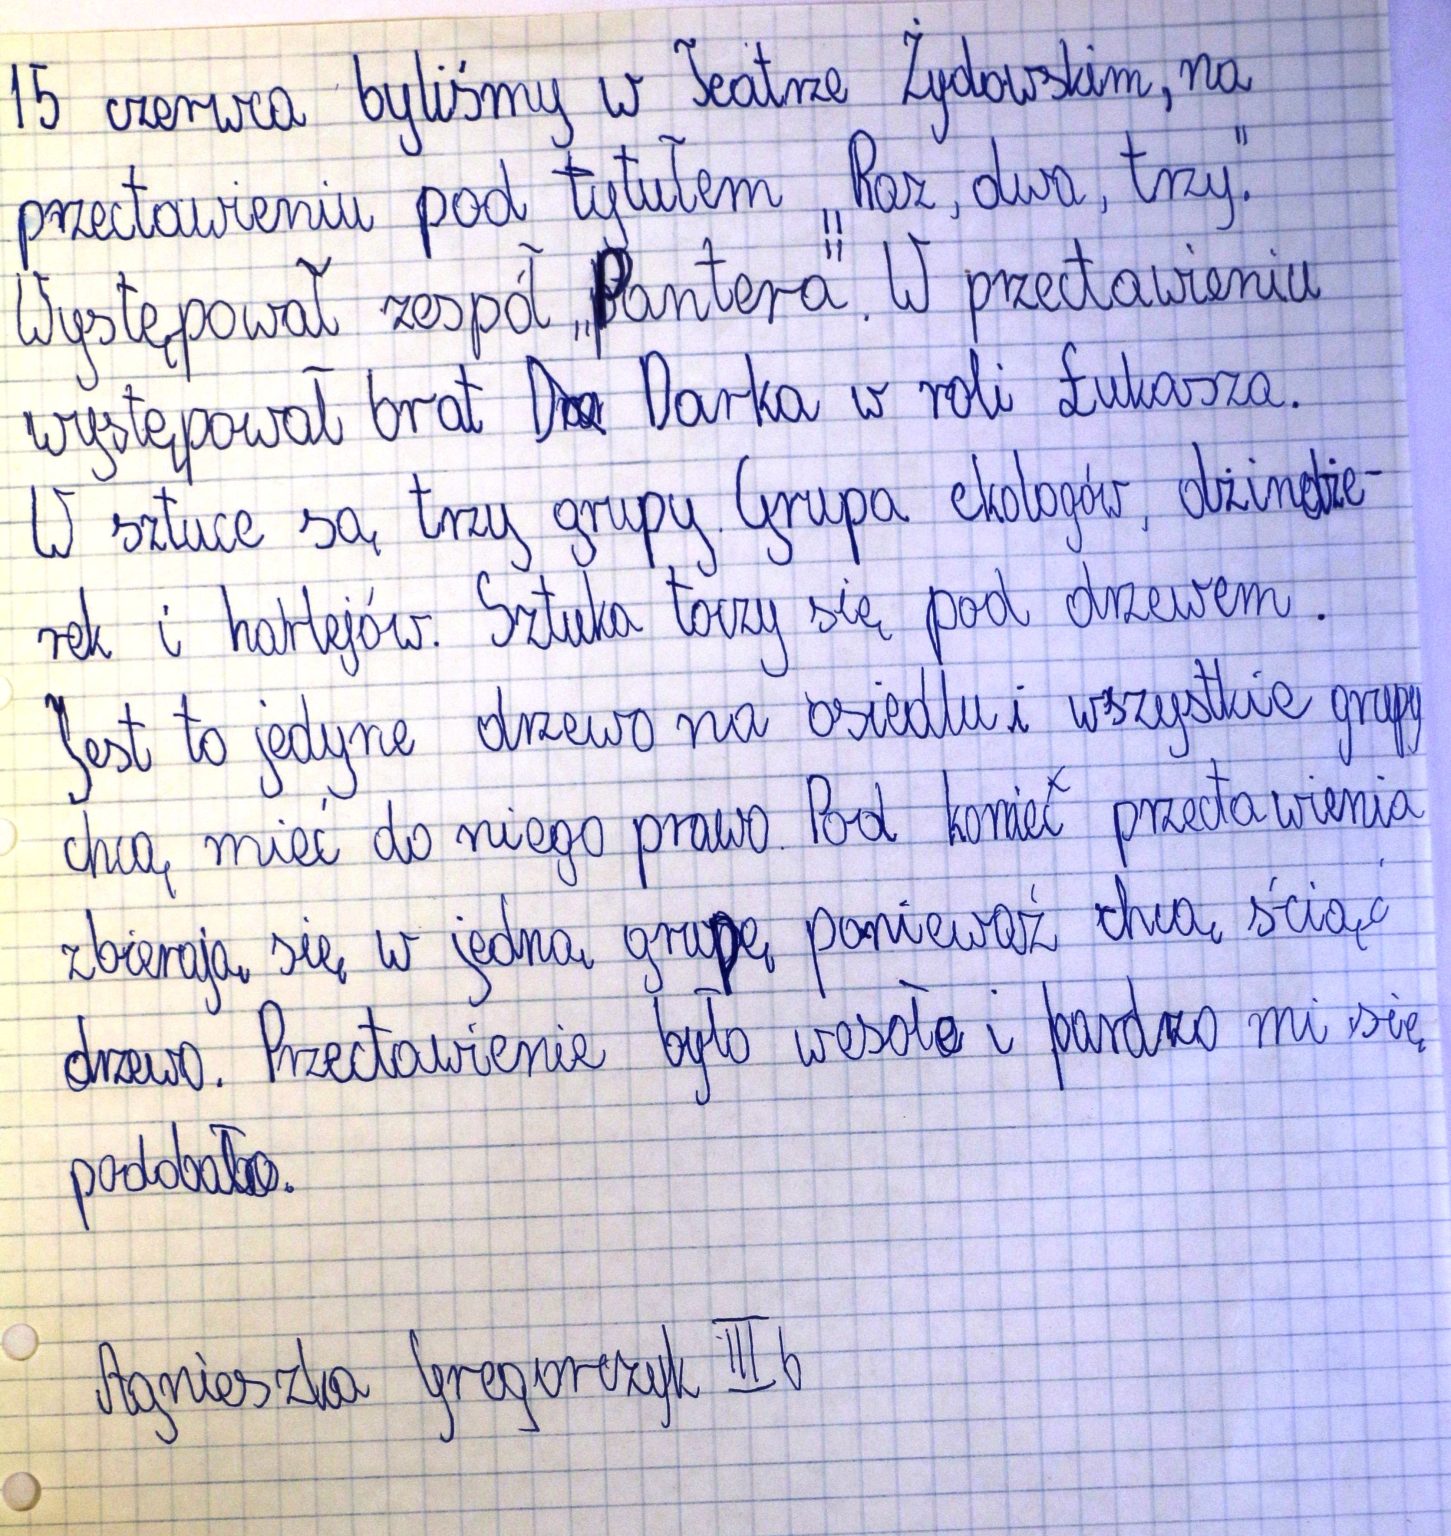 15 czerwca byliśmy w Teatrze Żydowskim, na
przectawieniu pod tytułem „Raz, dwa, trzy."
Występował zespół „Pantera". W przectawieniu
występował brat Darka w roli Łukasza.
W sztuce są trzy grupy. Grupa ekologów, dżinedże-
rek i harlejów. Sztuka toczy się pod drzewem.
Jest to jedyne drzewo na osiedlu i wszystkie grupy
chcą mieć do niego prawo. Pod konieć przectawienia
zbierają się w jedną grupę ponieważ chcą ściąć
drzewo. Przectawienie było wesołe i bardzo mi się
podobało.
Agnieszka Gregorczyk III b